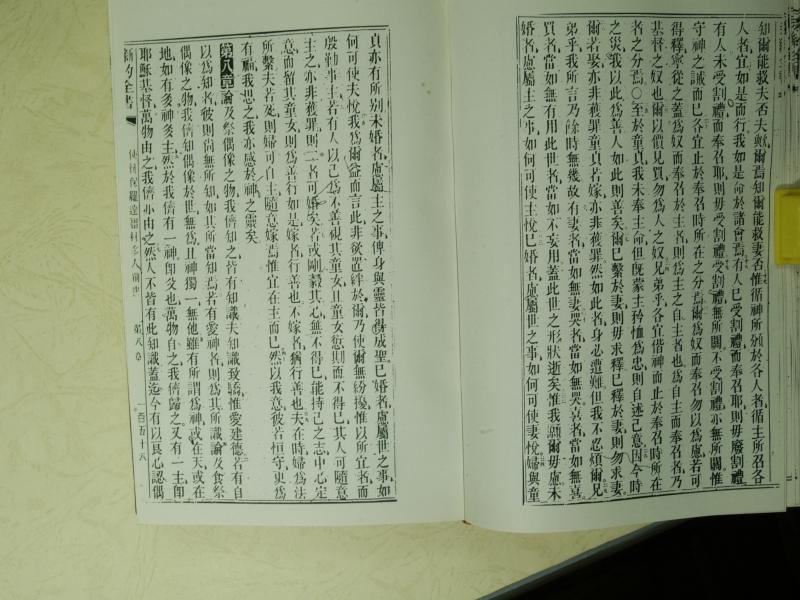 知爾能救夫否夫歟爾焉知爾能救妻否惟循神所頒於各人者循主所召各
人者宜如是而行我如是命於諸會焉有人已受割禮而奉召耶則毋廢割禮
有人未受割禮而奉召耶則毋受割禮割禮無所關不受割禮亦無所關惟
守神之誡而已各宜止於奉召時所在之分焉爾為奴而奉召勿以為慮若可
得釋寧從之蓋為奴而奉召於主者則為主之自主者也為自主而奉召者乃
基督之奴也爾以價見買勿為人之奴兄弟乎各宜偕神而止於奉召時所在
者之分焉〇至於童貞我未奉主命但既蒙主矜恤為忠則自述己意因今時
之災我以此為善人如此則善矣爾已繫於妻則毋求釋已釋於妻則勿求妻
爾若娶亦非獲罪童貞若嫁亦非獲罪然如此者身必遭難但我不忍煩爾兄
弟乎我所言乃餘時無幾故有妻者當如無妻哭者當如無哭喜者當如無喜
買者當如無有用此世者當如不妄用蓋此世之形狀逝矣惟我願爾毋慮未
婚者慮屬主之事如何可使主悅已婚者慮屬世之事如何可使妻悅婦與童
貞亦有所別未婚者慮屬主之事俾身與靈皆得成聖已婚者慮屬世之事如
何可使夫悅我為爾益而言此非欲置絆於爾乃使爾無紛擾惟以所宜者而
殷勤事主若有人以己為不善視其童女且童女愆期而不得已其人可隨意
主之亦非獲罪則二者可婚矣若或剛毅其心無不得已能持己之志中心定
意而留其童女則為善行如是嫁者行善也不嫁者猶行善也夫在時婦為法
所繫夫若死則婦可自主隨意嫁焉惟宜在主而已然以我意彼若恒守更為
有福我思之我亦感於神之靈矣
第八章論及祭偶像之物我儕知之皆有知識夫知識致驕惟愛建德若有自
以為知者彼則尚無所知如其所當知焉若有愛神者則為其所識論及食祭
偶像之物我儕知偶像於世無為且神獨一無他雖有所謂為神或在天或在
地如有多神多主然於我儕有一神即父也萬物自之我儕歸之又有一主即
耶穌基督萬物由之我儕亦由之然人不皆有此知識蓋迄今有以良心認偶
新約全書
使徒保羅達哥林多人前書
第八章
一百五十八